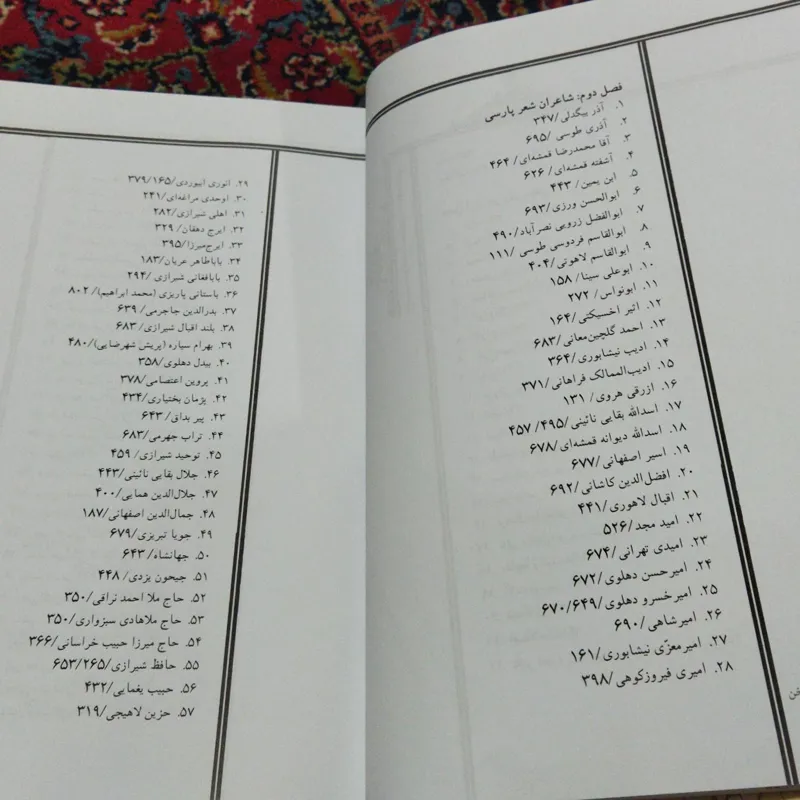 فصل دوم: شاعران شعر پارسی
۱. آذر بیگدلی/۳۴۷
۲. آذری طوسی /۶۹۵
۳. آقا محمدرضا قمشه‌ای/ ۴۶۴
۴. آشفته قمشه‌ای/ ۶۲۶
۵. ابن یمین/ ۴۴۳
۶. ابوالحسن ورزی/۶۹۳
۷. ابوالفضل زرویی نصرآباد/ ۴۹۰
۸. ابوالقاسم فردوسی طوسی /۱۱۱
۹. ابوالقاسم لاهوتی/ ۴۰۴
۱۰. ابوعلی سینا/ ۱۵۸
۱۱. ابونواس/ ۲۷۲
۱۲. اثیر اخسیکتی/ ۱۶۴
۱۳. احمد گلچین‌معانی/ ۶۸۳
۱۴. ادیب نیشابوری/ ۳۶۴
۱۵. ادیب‌الممالک فراهانی/ ۳۷۱
۱۶. ازرقی هروی/ ۱۳۱
۱۷. اسدالله بقایی نائینی/۴۹۵/ ۴۵۷
۱۸. اسدالله دیوانه قمشه‌ای/ ۶۷۸
۱۹. اسیر اصفهانی/ ۶۷۷
۲۰. افضل‌الدین کاشانی/ ۶۹۲
۲۱. اقبال لاهوری/۴۴۱
۲۲. امید مجد/ ۵۲۶
۲۳. امیدی تهرانی/ ۶۷۴
۲۴. امیرحسن دهلوی/ ۶۷۲
۲۵. امیرخسرو دهلوی/۶۴۹/ ۶۷۰
۲۶. امیرشاهی/ ۶۹۰
۲۷. امیرمعزّی نیشابوری/ ۱۶۱
۲۸. امیری فیروزکوهی/ ۳۹۸
۲۹. انوری ابیوردی/۱۶۵/ ۳۷۹
۳۰. اوحدی مراغه‌ای/ ۲۴۱
۳۱. اهلی شیرازی/ ۲۸۲
۳۲. ایرج دهقان/ ۳۲۹
۳۳. ایرج‌میرزا/ ۳۹۵
۳۴. باباطاهر عریان/ ۱۸۳
۳۵. بابافغانی شیرازی/ ۲۹۴
۳۶. باستانی پاریزی (محمد ابراهیم)/ ۸۰۲
۳۷. بدرالدین جاجرمی/ ۶۳۹
۳۸. بلند اقبال شیرازی/ ۶۸۳
۳۹. بهرام سیاره (پریش شهرضایی)/۴۸۰
۴۰. بیدل دهلوی/۳۵۸
۴۱. پروین اعتصامی/ ۳۷۸
۴۲. پژمان بختیاری/ ۴۳۴
۴۳. پیر بداق/ ۶۴۳
۴۴. تراب جهرمی/ ۶۸۳
۴۵. توحید شیرازی/ ۴۵۹
۴۶. جلال بقایی نائینی/ ۴۴۳
۴۷. جلال‌الدین همایی/ ۴۰۰
۴۸. جمال‌الدین اصفهانی/ ۱۸۷
۴۹. جویا تبریزی/ ۶۷۹
۵۰. جهانشاه/ ۶۴۳
۵۱. جیحون یزدی/ ۴۴۸
۵۲. حاج ملا احمد نراقی/ ۳۵۰
۵۳. حاج ملاهادی سبزواری/ ۳۵۰
۵۴. حاج میرزا حبیب خراسانی/ ۳۶۶
۵۵. حافظ شیرازی/۲۶۵/ ۶۵۳
۵۶. حبیب یغمایی/ ۴۳۲
۵۷. حزین لاهیجی/ ۳۱۹